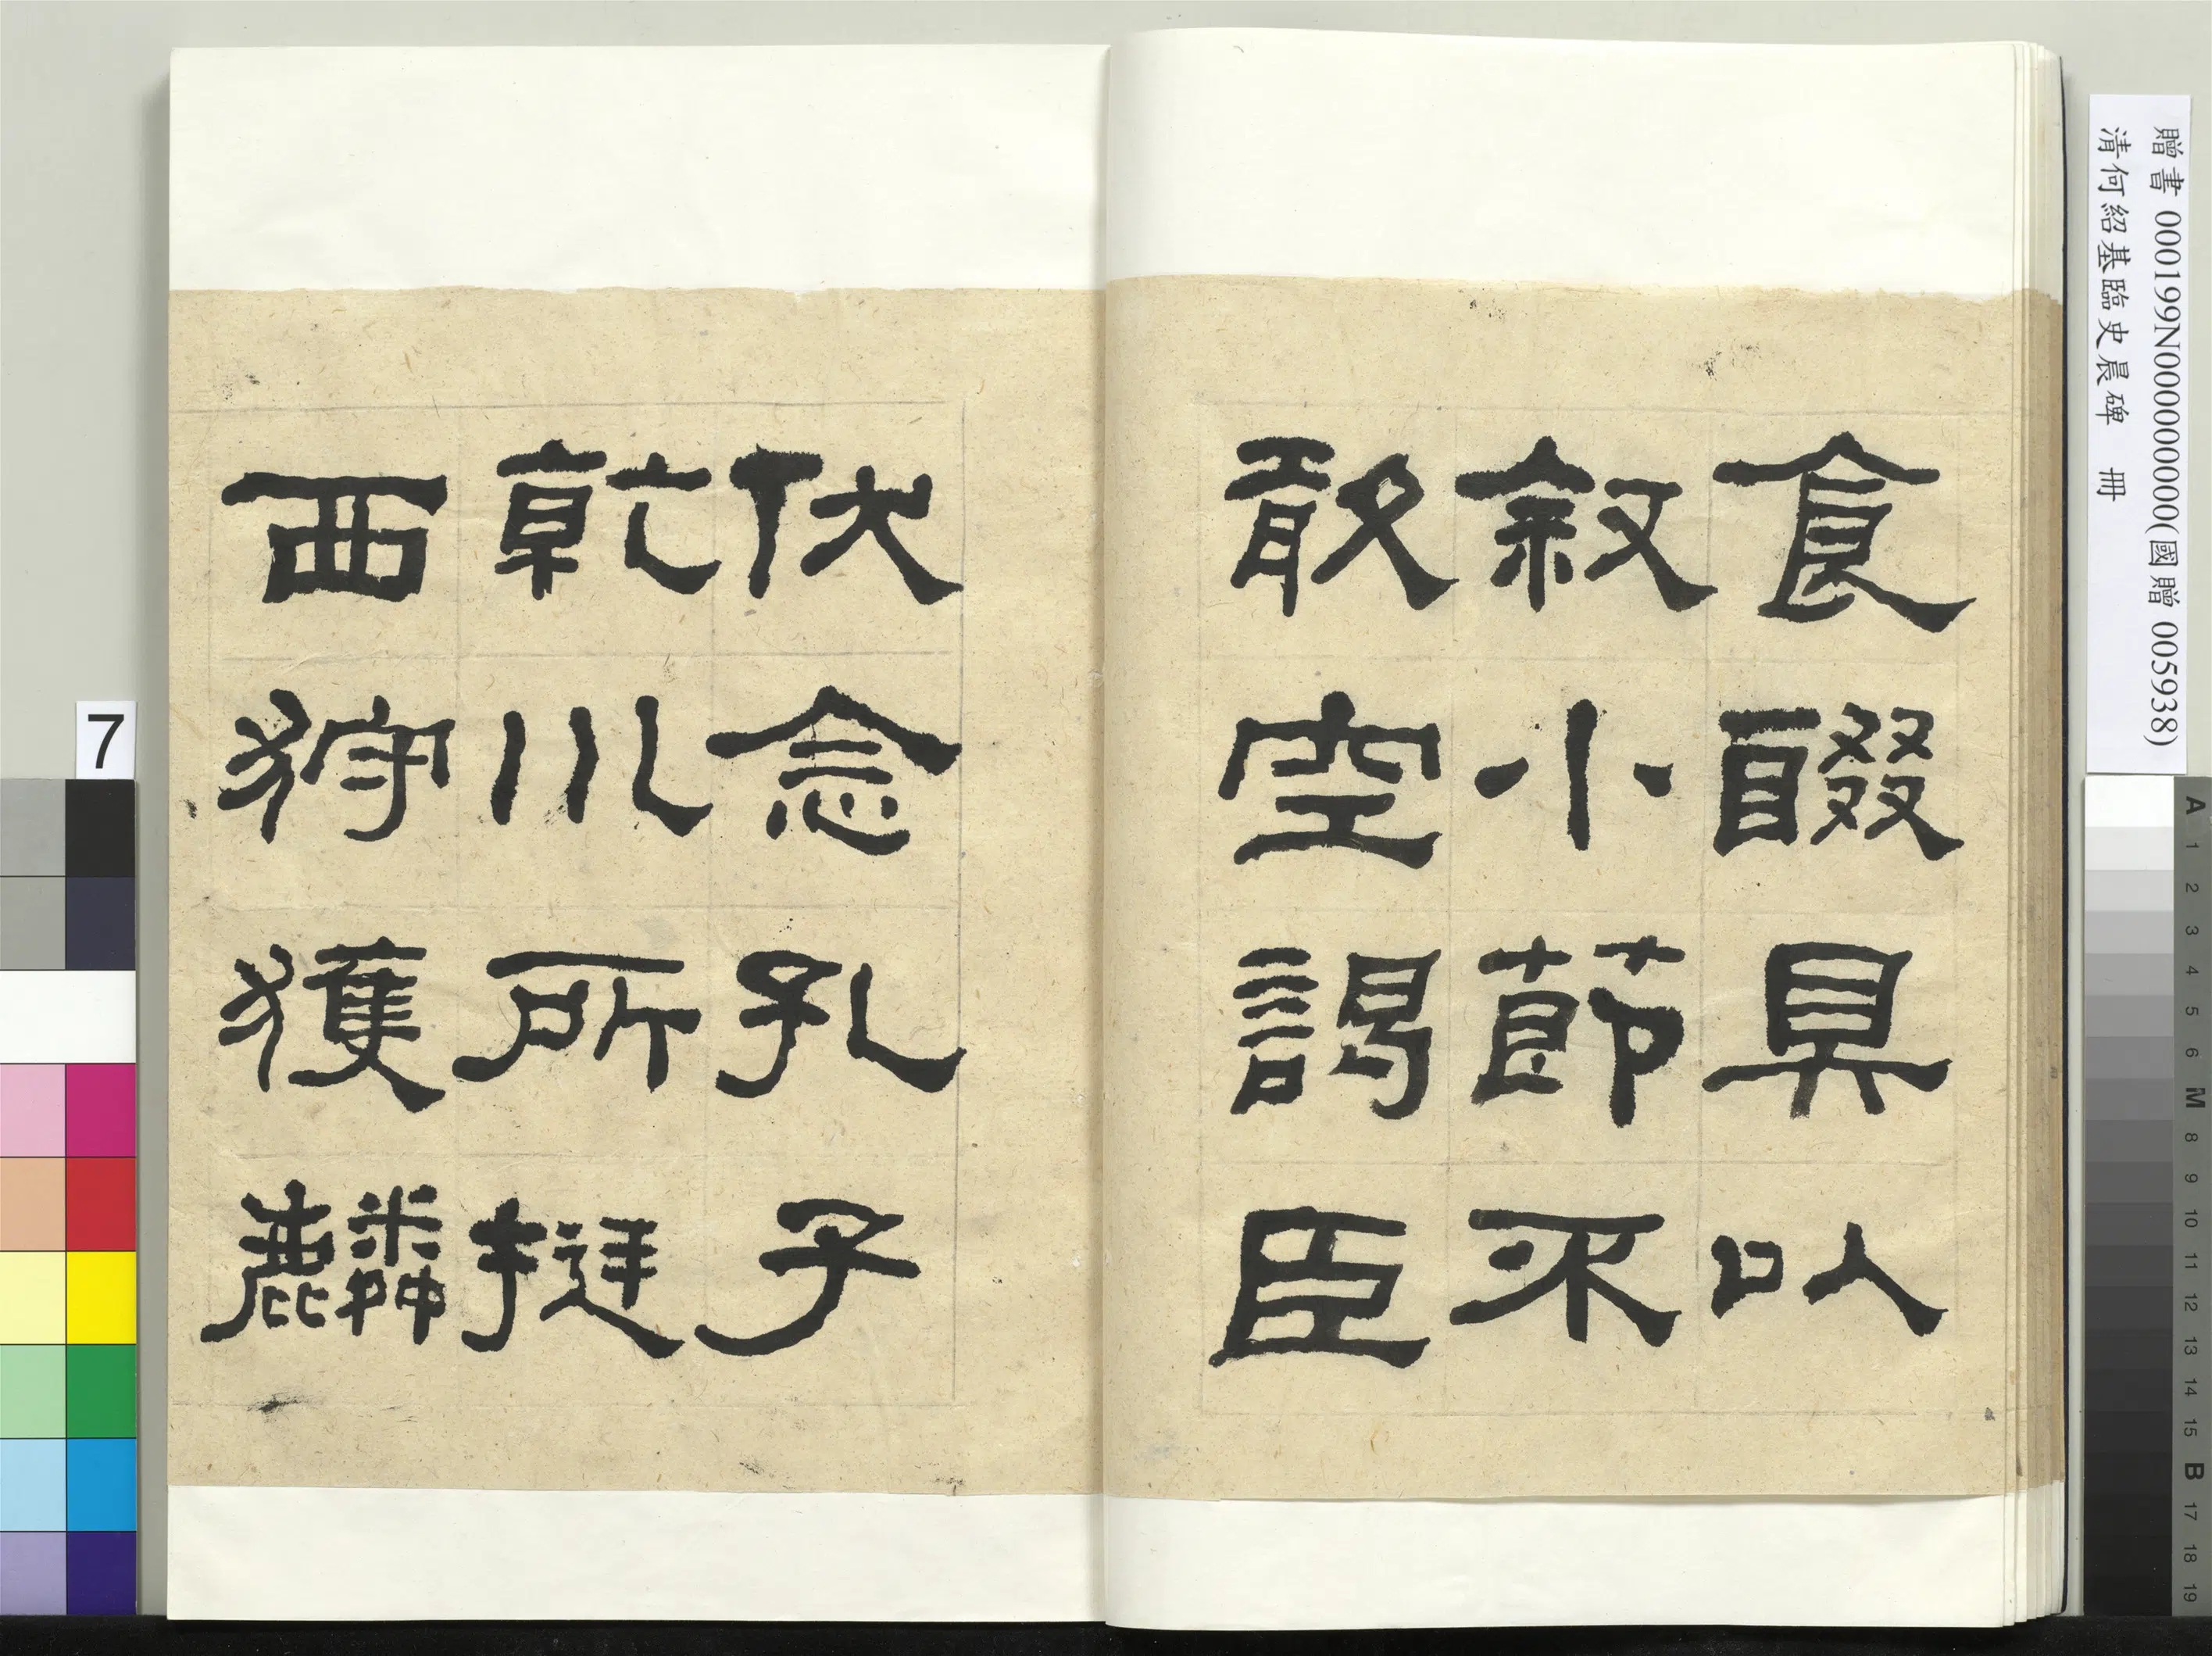 食餟具以
敘小節不
敢空謁臣
伏念孔子
乾川所挺
西狩獲麟
贈書 000199N000000000(國贈 005938)
清何紹基臨史晨碑 冊
7
A 1 2 3 4 5 6 M 8 9 10 11 12 13 14 15 B 17 18 19